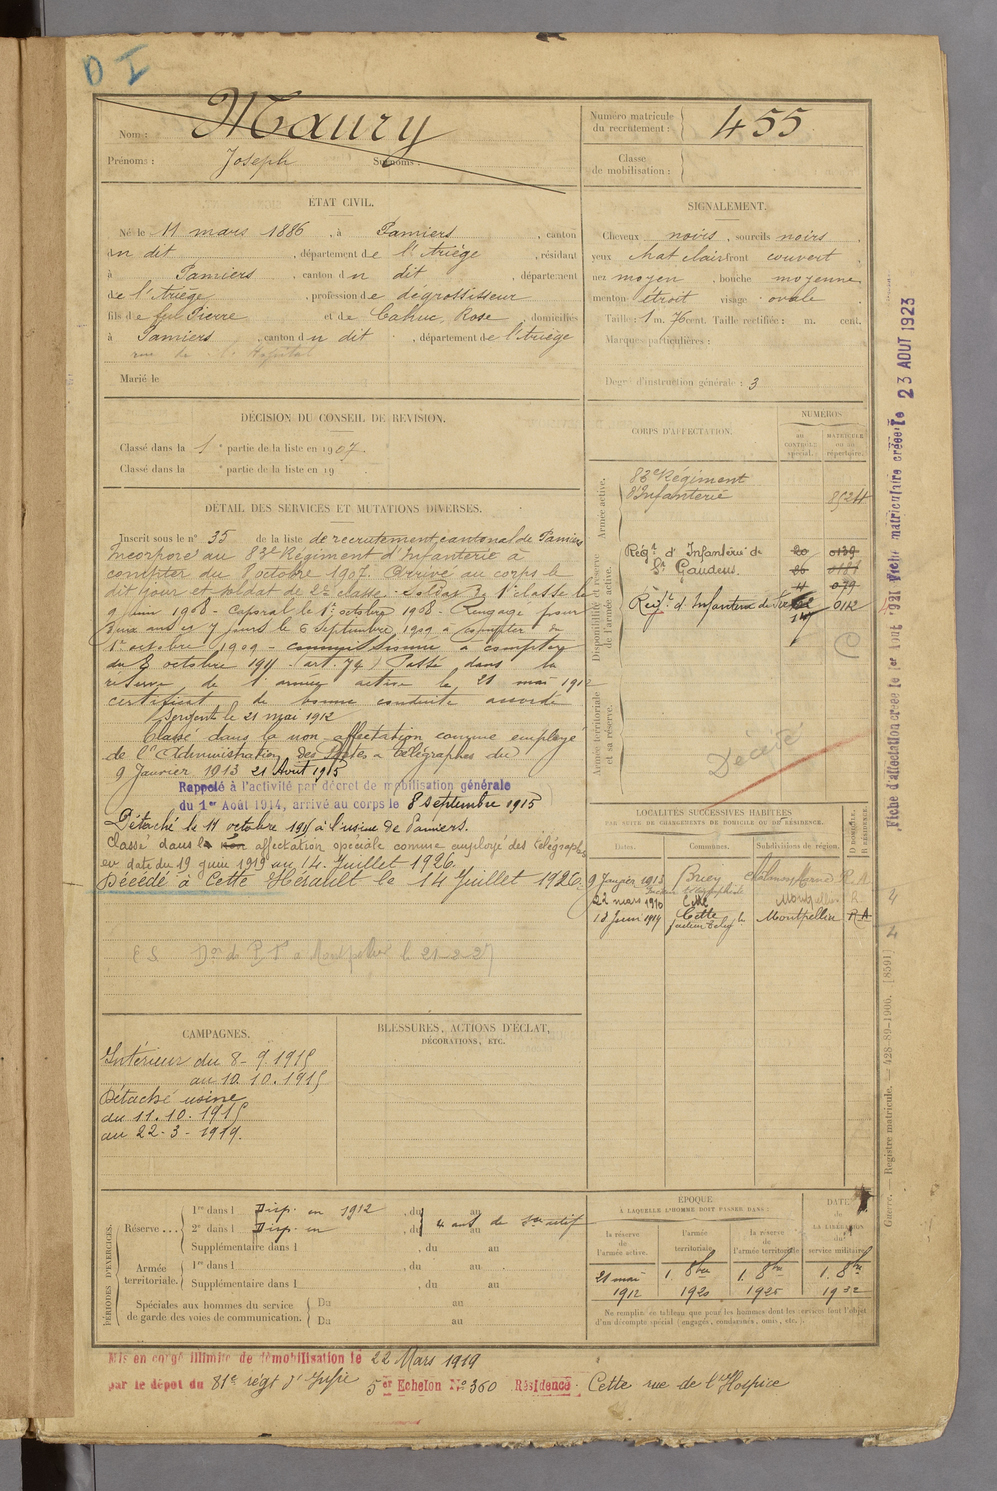 D I
Nom : Maury
Prénoms : Joseph Surnoms :
Numéro matricule du recrutement : 455
Classe de mobilisation :
ÉTAT CIVIL.
Né le 11 mars 1886, à Pamiers, canton
du dit, département de l'Ariège, résidant
à Pamiers, canton du dit, département
de l'Ariège, profession de dégrossisseur
fils de feu Pierre et de Cahuc, Rose, domiciliés
à Pamiers, canton du dit, département de l'Ariège
rue de l'Hopital
Marié le
SIGNALEMENT.
Cheveux noirs, sourcils noirs
yeux chat clair front couvert
nez moyen, bouche moyenne
menton étroit visage ovale
Taille : 1 m. 76 cent. Taille rectifiée : m. cent.
Marques particulières :
Degré d'instruction générale : 3
DÉCISION DU CONSEIL DE RÉVISION.
Classé dans la 1e partie de la liste en 1907
Classé dans la e partie de la liste en 19
DÉTAIL DES SERVICES ET MUTATIONS DIVERSES.
Inscrit sous le n° 35 de la liste de recrutement cantonal de Pamiers
Incorporé au 83e Régiment d'Infanterie à
compter du 8 octobre 1907. Arrivé au corps le
dit jour et soldat de 2e classe. Soldat de 1e classe le
9 juin 1908 - Caporal le 1er octobre 1908 - Rengagé pour
deux ans et 7 jours le 6 Septembre 1909 à compter du
1er octobre 1909 - à compter
du 8 octobre 1911 (art. 74) Passé dans la
réserve de l'armée active le 21 mai 1912
certificat de bonne conduite accordé
Sergent le 21 mai 1912
Classé dans la non affectation comme employé
de l'Administration des Postes & télégraphes du
9 Janvier 1913 21 Août 1915
Rappelé à l'activité par décret de mobilisation générale
du 1er Août 1914, arrivé au corps le 8 septembre 1915
Détaché le 11 octobre 1915 à l'usine de Pamiers.
Classé dans la non affectation spéciale comme employé des télégraphes
en date du 19 juin 1919 au 14 Juillet 1926.
Décédé à Cette Hérault le 14 Juillet 1926.
CORPS D'AFFECTATION.
NUMÉROS
AU CONTRÔLE spécial.
MATRICULE ou au répertoire.
Armée active.
83e Régiment
d'Infanterie 8524
Disponibilité et réserve de l'armée active.
Régt d'Infanterie de 20 0139
St Gaudens. 26 0181
4 079
Régt d'Infanterie de 0112
Armée territoriale et sa réserve.
Décédé
LOCALITÉS SUCCESSIVES HABITÉES
PAR SUITE DE CHANGEMENTS DE DOMICILE OU DE RÉSIDENCE.
Dates. Communes. Subdivisions de région. D DOMICILE. R RÉSIDENCE.
9 Janvier 1913 Briey Châlons s/ Marne R. A
22 mars 1910 Cette Montpellier R
18 Juin 1914 Cette Montpellier R A
CAMPAGNES.
Intérieur du 8-9-1915
au 10.10.1915
Détaché usine
du 11.10.1915
au 22-3-1919.
BLESSURES, ACTIONS D'ÉCLAT,
DÉCORATIONS, ETC.
PÉRIODES D'EXERCICES.
Réserve ... 1re dans l Disp. en 1912, du au
2e dans l Disp. en, du au
Supplémentaire dans l, du au
Armée territoriale. 1re dans l, du au
Supplémentaire dans l, du au
Spéciales aux hommes du service de garde des voies de communication. Du au
Du au
ÉPOQUE
À LAQUELLE L'HOMME DOIT PASSER DANS :
la réserve de l'armée active. l'armée territoriale. la réserve de l'armée territoriale. DATE de LA LIBÉRATION du service militaire.
21 mai 1912 1. 8bre 1920 1. 8bre 1926 1. 8bre 1932
Ne remplir ce tableau que pour les hommes dont les services font l'objet
d'un décompte spécial (engagés, condamnés, omis, etc.)
Mis en congé illimité de démobilisation le 22 Mars 1919
par le dépôt du 81e régt d'Infie 5er Echelon N° 360 Résidence Cette rue de l'Hospice
Fiche d'affectation créée le 1er Août 1921 Fiche matriculaire créée le 23 AOUT 1923
Guerre. — Registre matricule. — 428-89-1906. [8591]